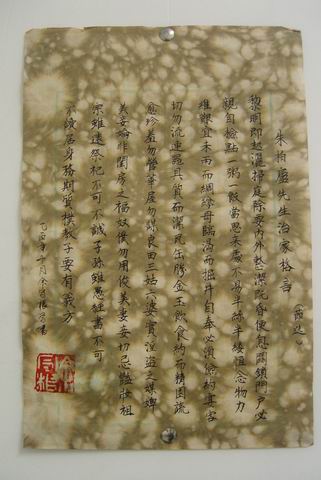 朱柏廬先生治家格言（節选）
黎明即起灑掃庭除要內外整潔既昏便息關鎖門戶必
親自檢點一粥一飯當思來處不易半絲半縷恒念物力
維艱宜未雨而綢繆毋臨渴而掘井自奉必須儉約宴客
切勿流連器具質而潔瓦缶勝金玉飲食約而精園蔬
愈珍羞勿營華屋勿謀良田三姑六婆實淫盜之媒婢
美妾嬌非閨房之福奴僕勿用俊美妻妾切忌豔妝祖
宗雖遠祭祀不可不誠子孫雖愚經書不可
不讀居身務期質樸教子要有義方